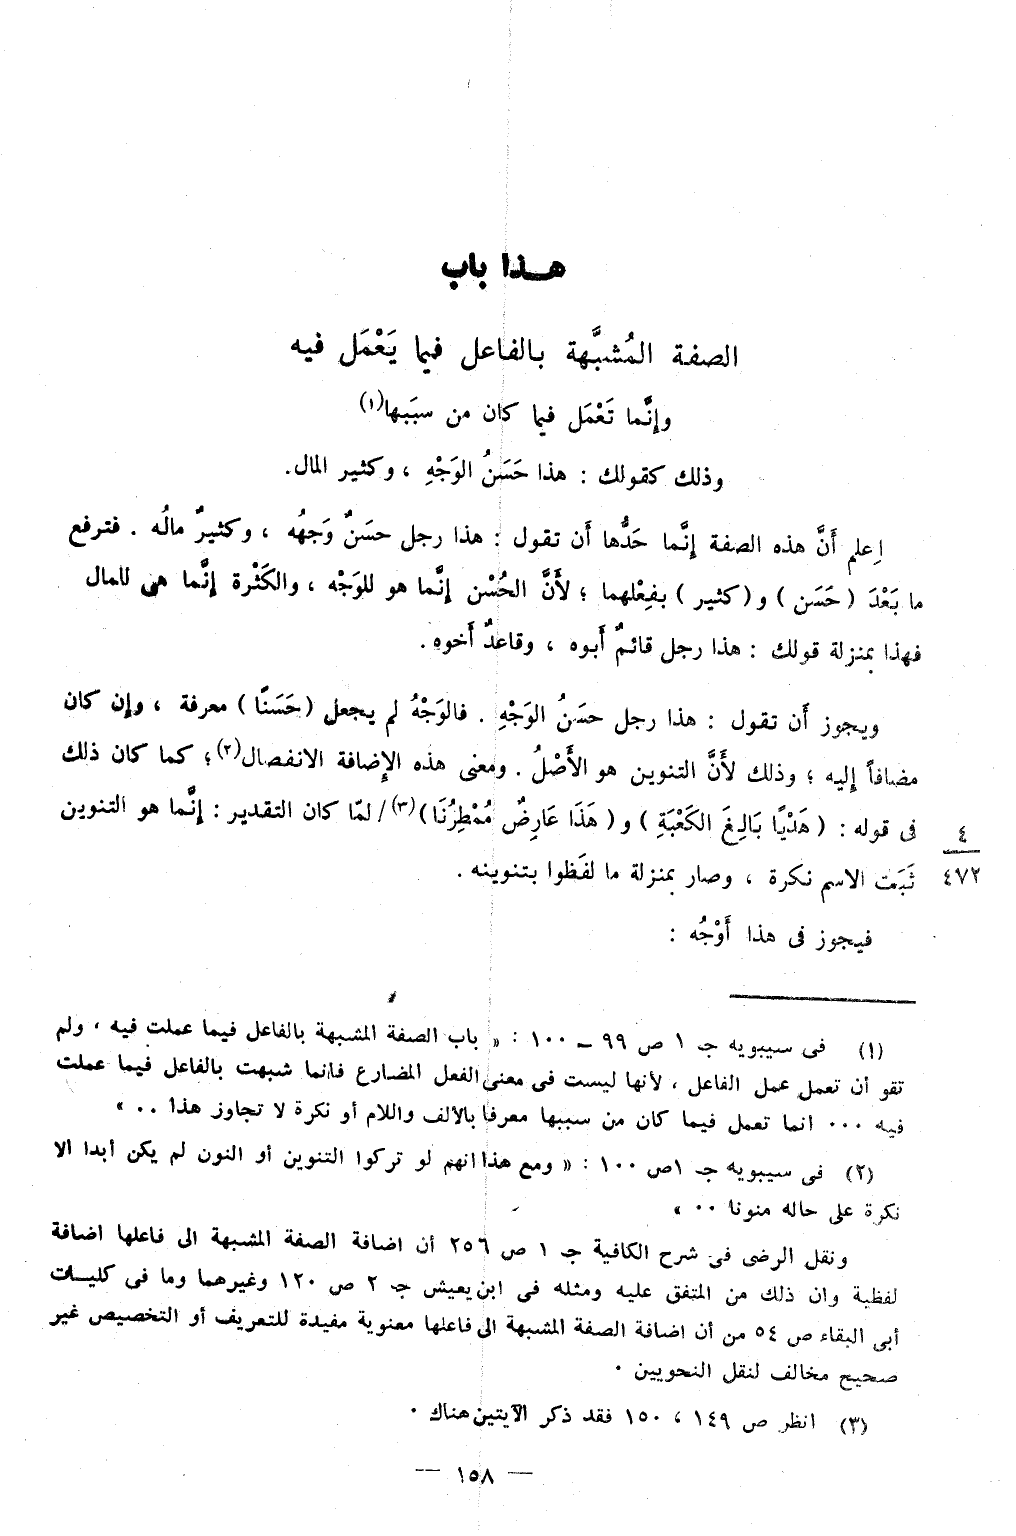 هـذا باب
الصفة المُشبَّهة بالفاعل فيما يَعْمَل فيه
وإنَّما تَعْمَل فيما كان من سببها(١)
وذلك كقولك : هذا حَسَنُ الوَجْهِ ، وكثير المال.
اِعلم أَنَّ هذه الصفة إنَّما حَدُّها أَن تقول : هذا رجل حسَنٌ وَجهُه ، وكثيرٌ مالُه . فترفع
ما بَعْدَ ( حَسَن ) و ( كثير ) بفِعْلهما ؛ لأَنَّ الحُسْن إنَّما هو للوَجْه ، والكَثْرة إنَّما هى للمال
فهذا بمنزلة قولك : هذا رجل قائمٌ أَبوه ، وقاعدٌ أَخوه.
ويجوز أَن تقول : هذا رجل حسَنُ الوَجْهِ . فالوَجْهُ لم يجعل ( حَسَنًا ) معرفة ، وإن كان
مضافاً إليه ؛ وذلك لأَنَّ التنوين هو الأَصْلُ . ومعنى هذه الإضافة الانفصال(٢)؛ كما كان ذلك
فى قوله : ( هَدْيًا بَالِغَ الكَعْبَةِ ) و ( هَذَا عَارِضٌ مُمْطِرُنَا )(٣)/ لمّا كان التقدير : إنَّما هو التنوين
٤
٤٧٢
ثَبَت الاسم نكرة ، وصار بمنزلة ما لفَظوا بتنوينه .
فيجوز فى هذا أَوْجُه :
(١) فى سيبويه جـ ١ ص ٩٩ ـ ١٠٠ : « باب الصفة المشبهة بالفاعل فيما عملت فيه ، ولم
تقو أن تعمل عمل الفاعل ، لأنها ليست فى معنى الفعل المضارع فانما شبهت بالفاعل فيما عملت
فيه ٠٠٠ انما تعمل فيما كان من سببها معرفا بالالف واللام أو نكرة لا تجاوز هذا ٠٠ »
(٢) فى سيبويه جـ ١ص ١٠٠ : « ومع هذا انهم لو تركوا التنوين أو النون لم يكن أبدا الا
نكرة على حاله منونا ٠٠ »
ونقل الرضى فى شرح الكافية جـ ١ ص ٢٥٦ أن اضافة الصفة المشبهة الى فاعلها اضافة
لفظية وان ذلك من المتفق عليه ومثله فى ابن يعيش جـ ٢ ص ١٢٠ وغيرهما وما فى كليـات
أبى البقاء ص ٥٤ من أن اضافة الصفة المشبهة الى فاعلها معنوية مفيدة للتعريف أو التخصيص غير
صحيح مخالف لنقل النحويين ٠
(٣) انظر ص ١٤٩ ، ١٥٠ فقد ذكر الآيتين هناك ٠
— ١٥٨ —